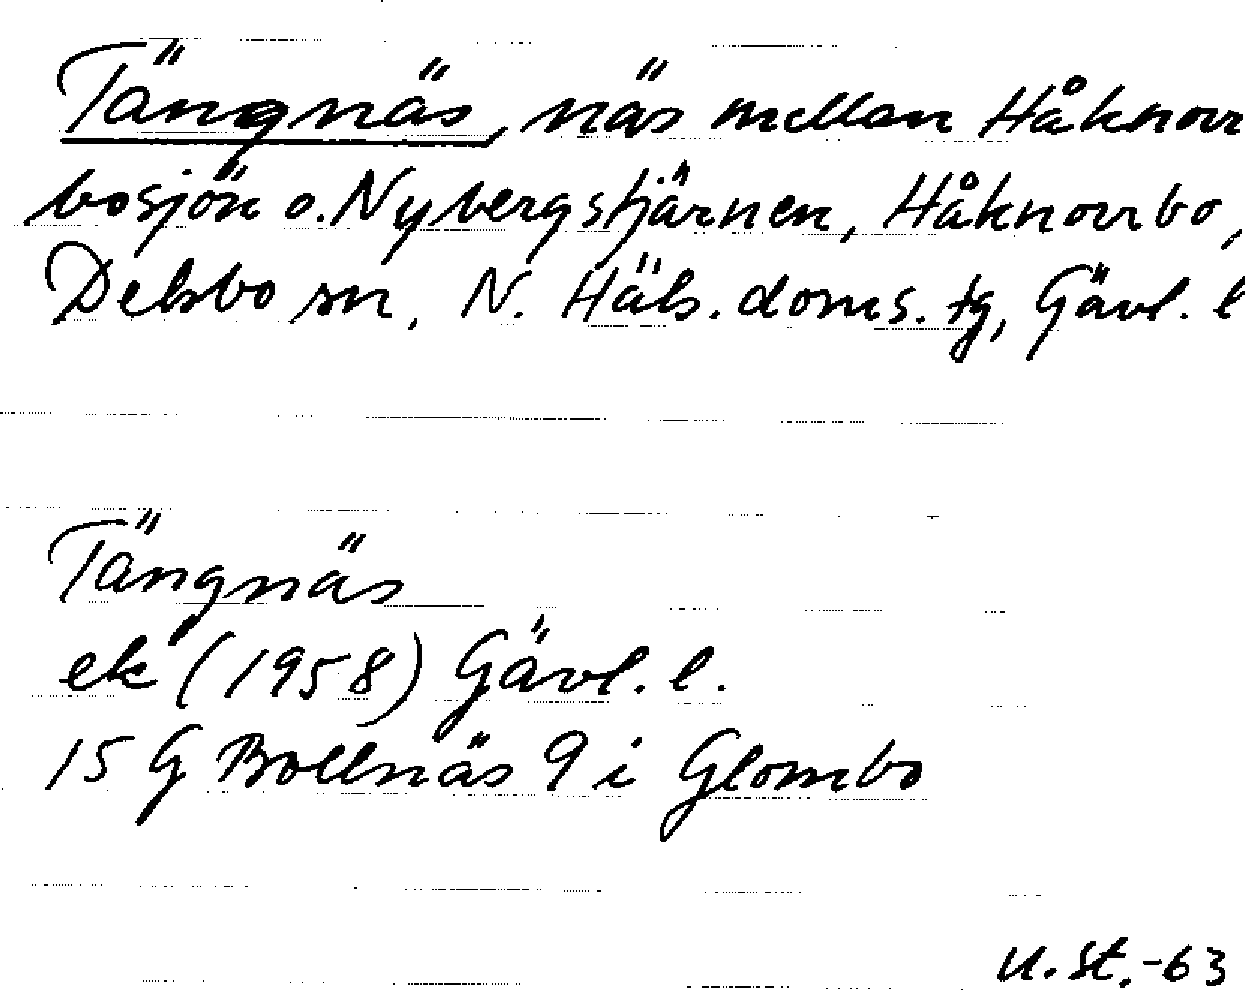 Tängnäs, näs mellan Håknorr
bosjön o. Nybergstjärnen, Håknorrbo,
Delsbo sn, N. Häls. doms. tg, Gävl. l
Tängnäs
ek (1958) Gävl. l.
15 G Bollnäs 9 i Glombo
U. St. -63